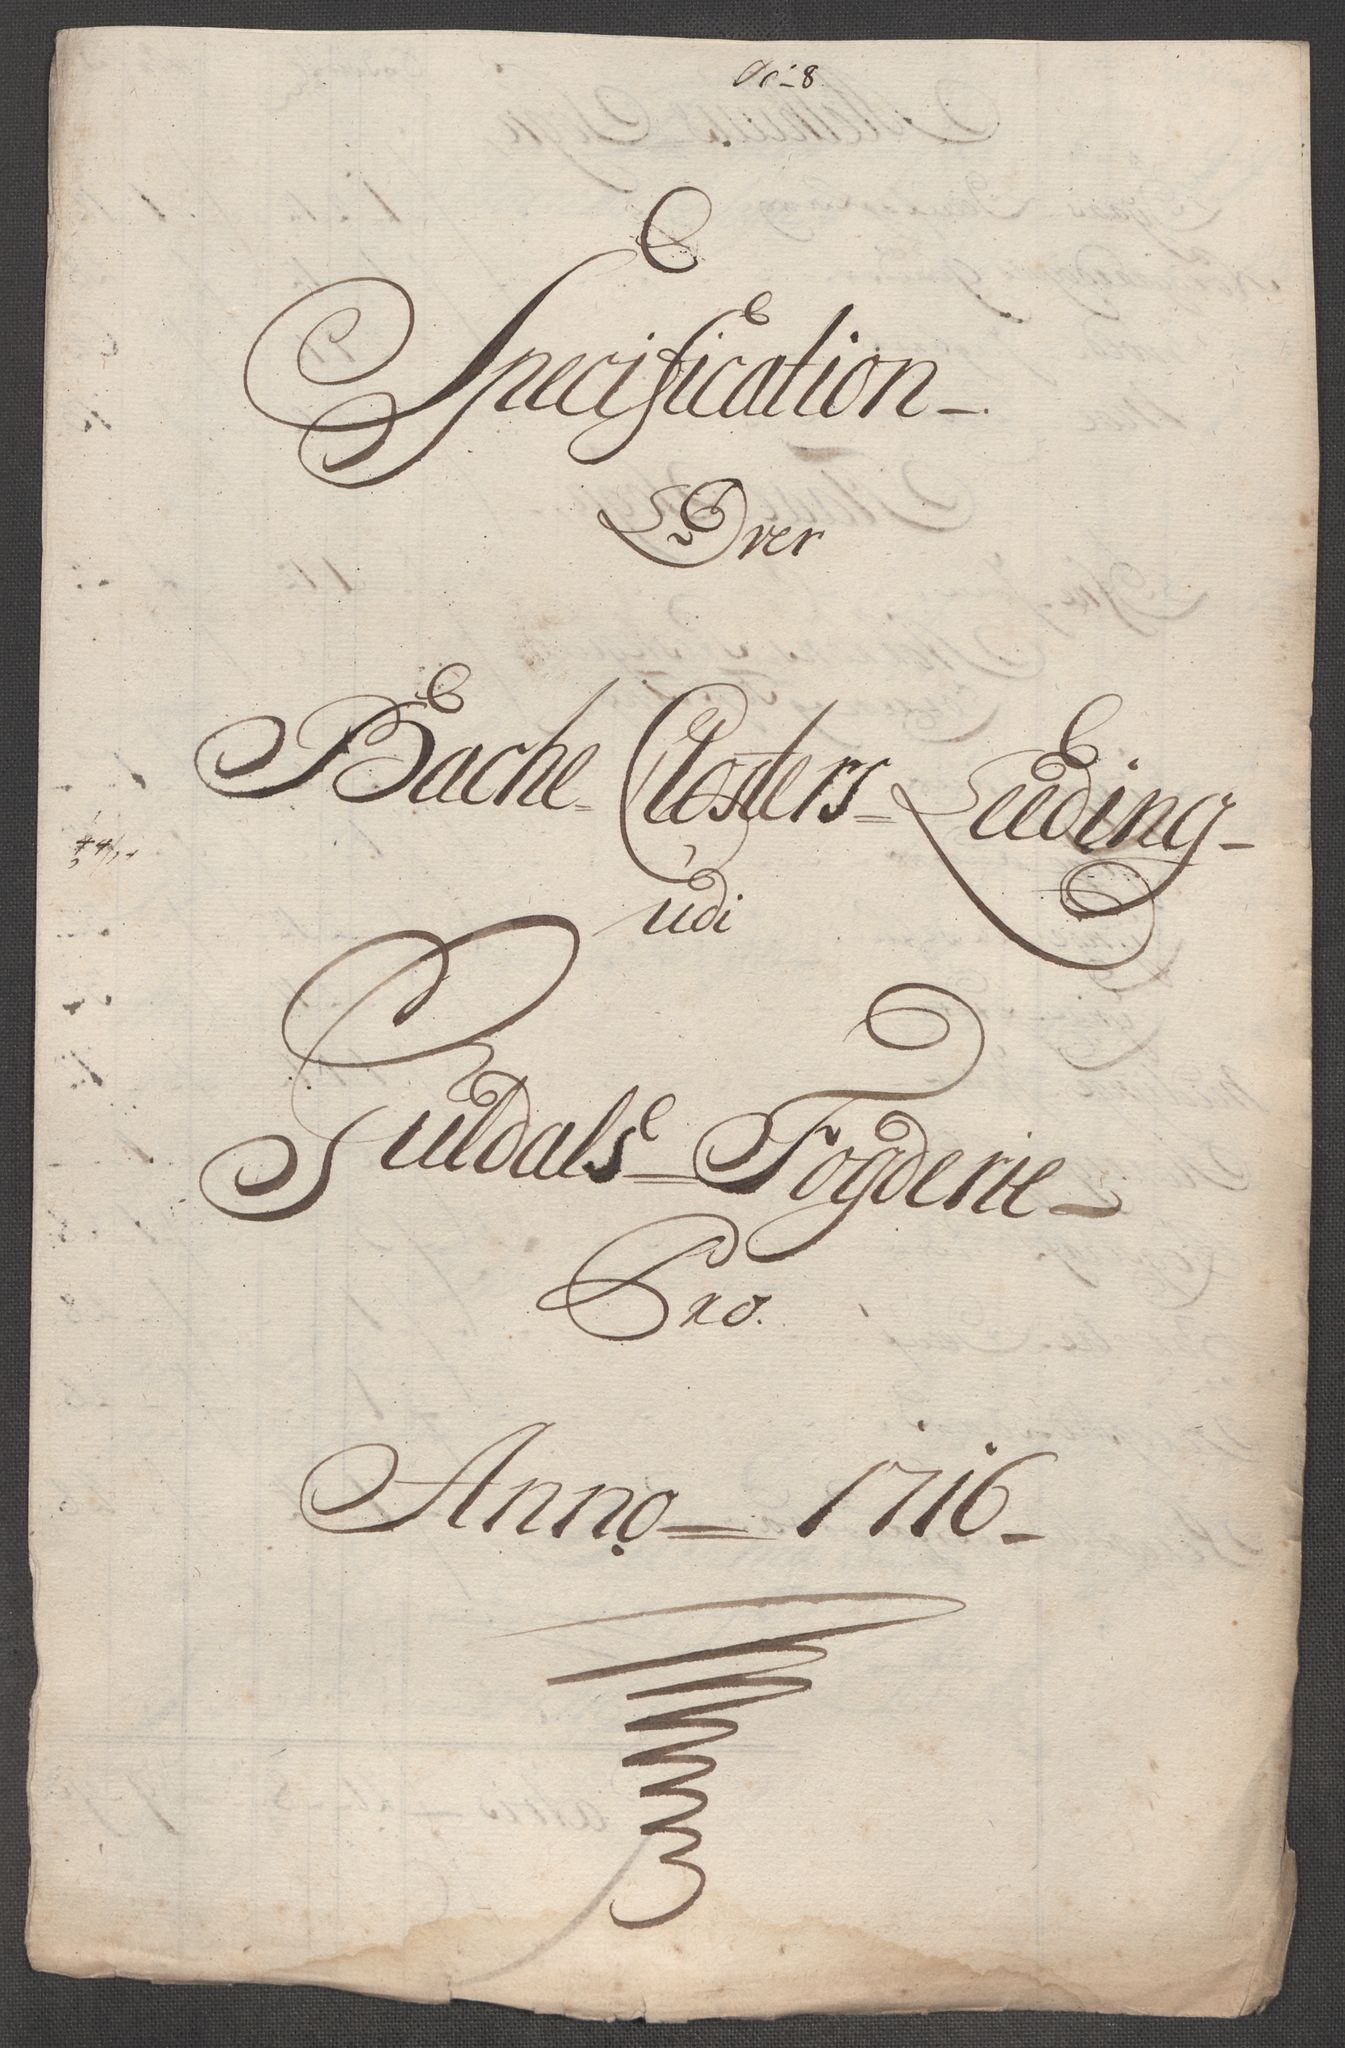 Specification
Over
Bache Closters Leeding
udi
Guldals Fogderie
Pro.
Anno 1716